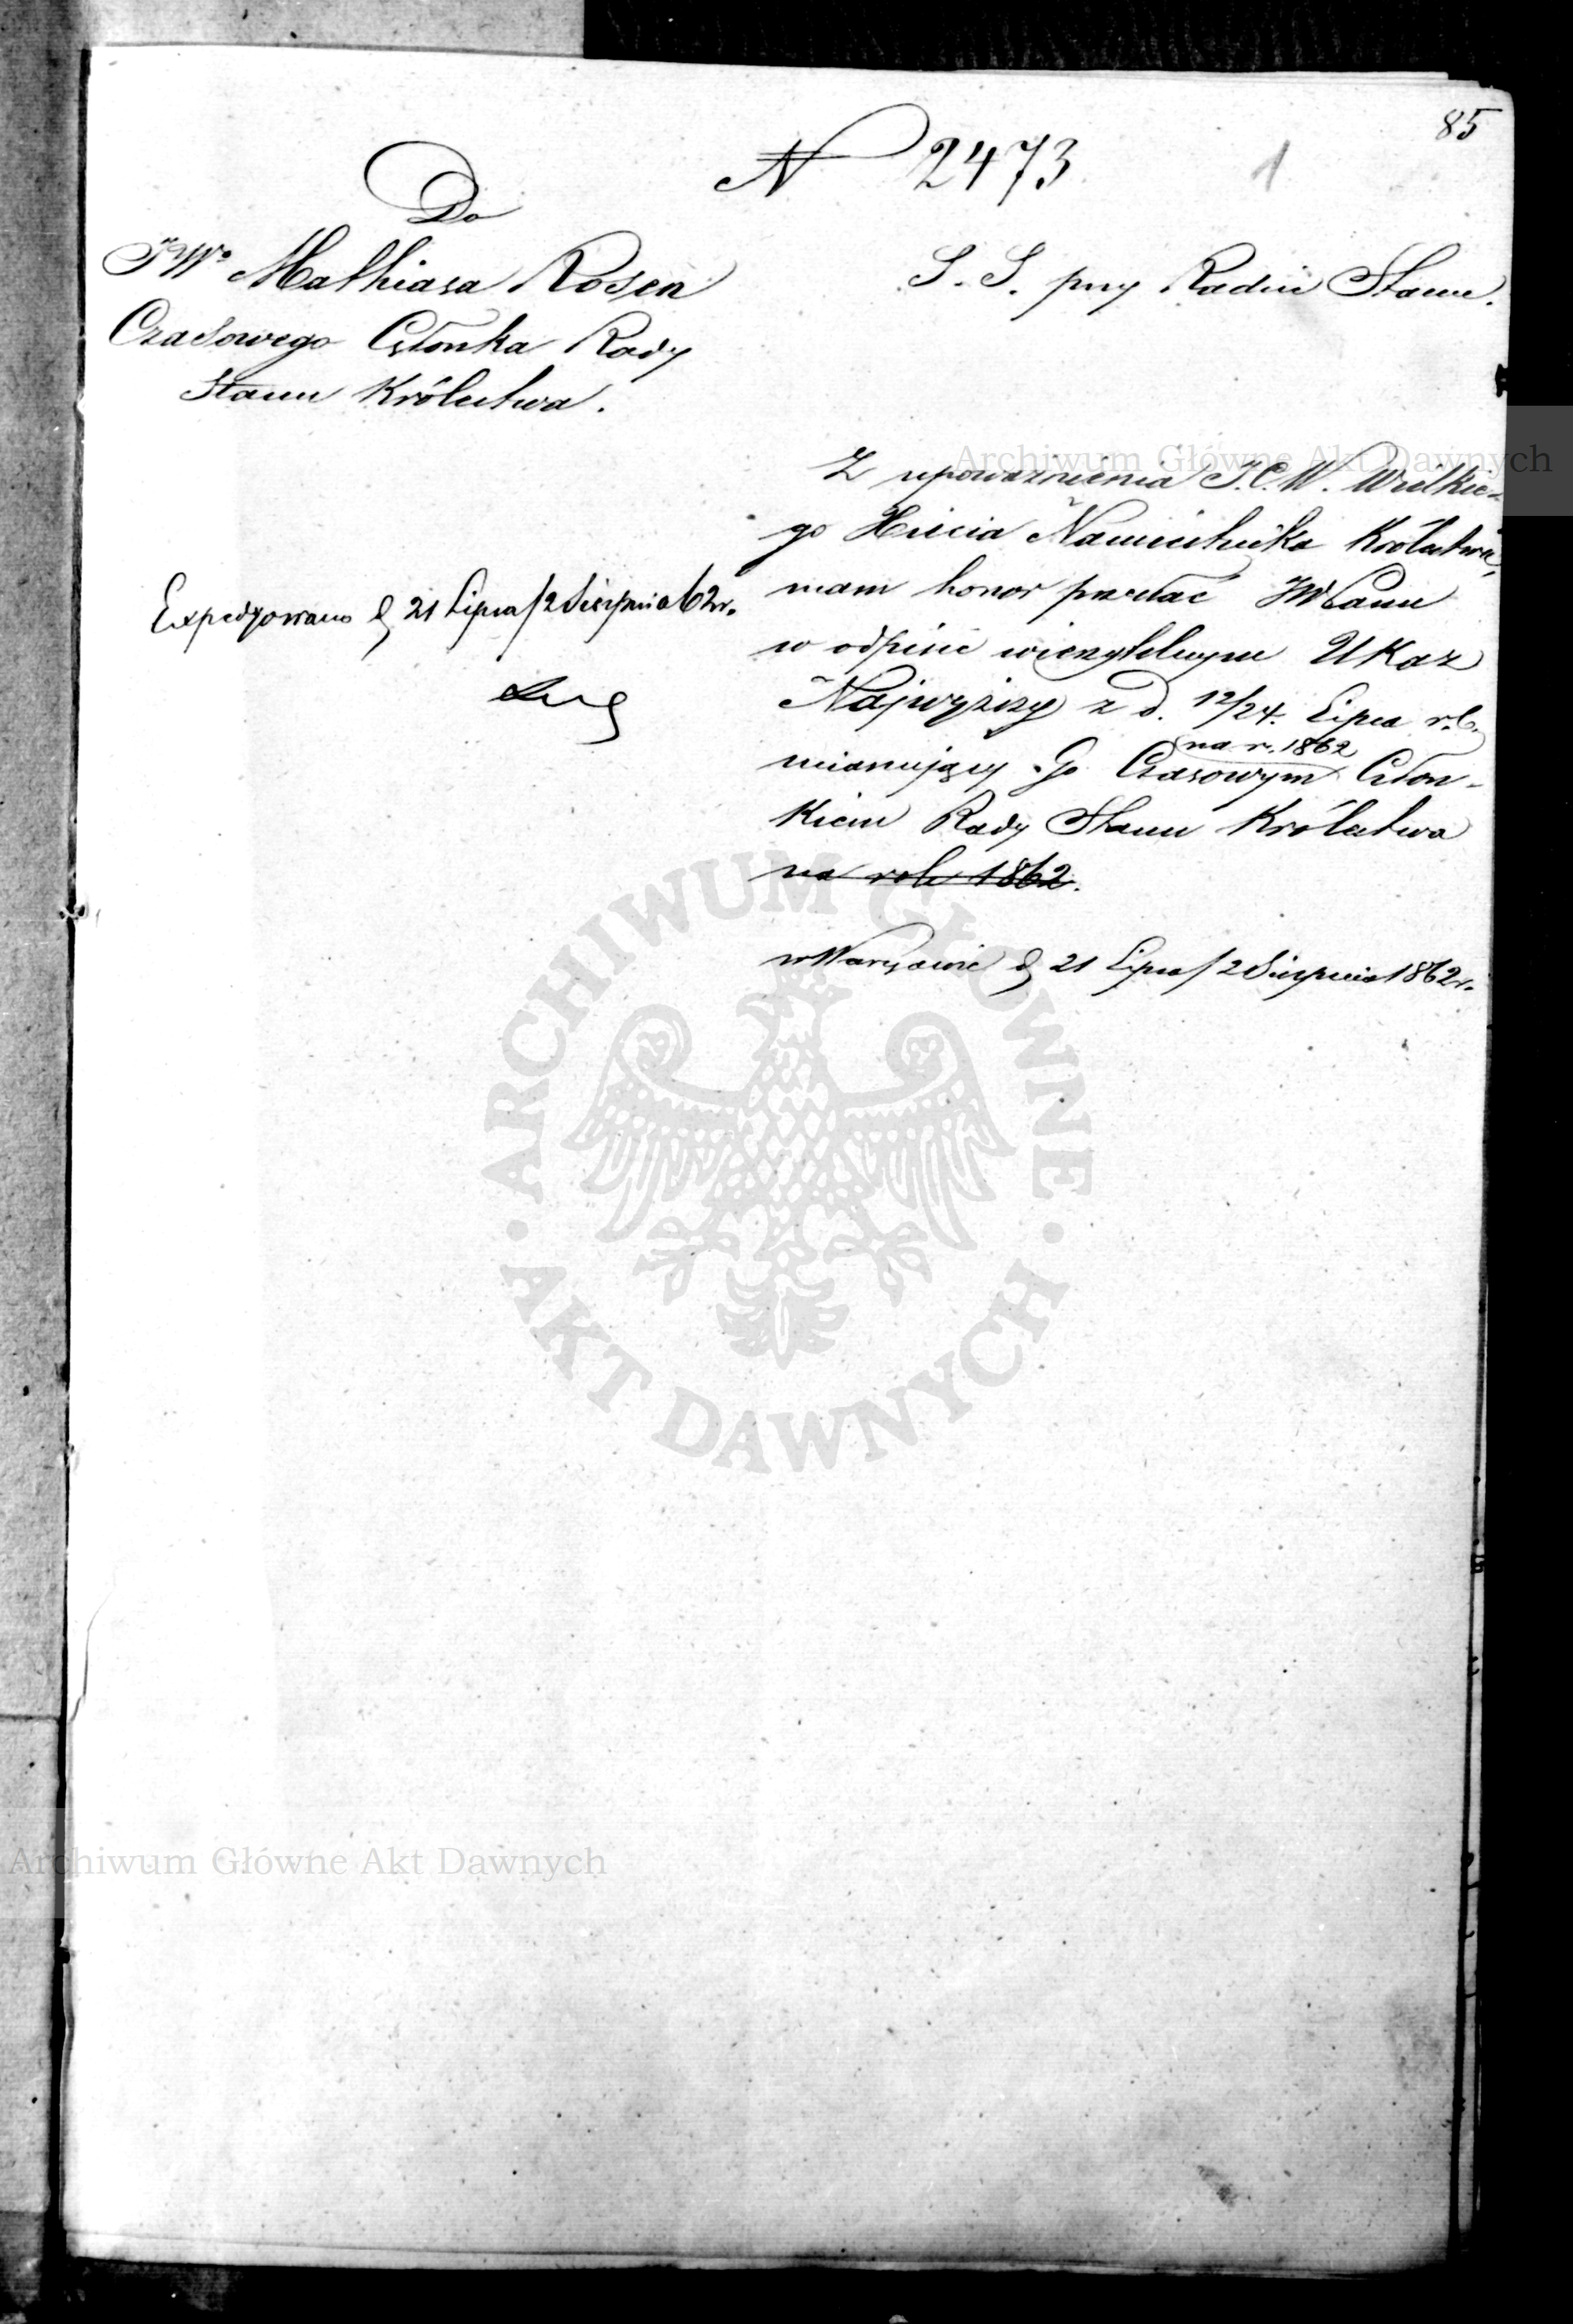 85
N 2473
1
Do
JWo Mathiasa Rosen
Czasowego Członka Rady
Stanu Królestwa.
S. S. przy Radzie Stanu.
Z upoważnienia J.C.W. Wielkie-
go Xięcia Namiestnika Królestwa,
mam honor przesłać JWPanu
w odpisie wierzytelnym Ukaz
Najwyższy z d. 12/24. Lipca r.b.
na r. 1862
mianujący Go Czasowym Człon-
kiem Rady Stanu Królestwa
na rok 1862.
w Warszawie d 21 Lipca/2 Sierpnia 1862 r.
Expedyowano d 21 Lipca/2 Sierpnia 62 r.
Archiwum Główne Akt Dawnych
ARCHIWUM GŁÓWNE
AKT DAWNYCH
Archiwum Główne Akt Dawnych